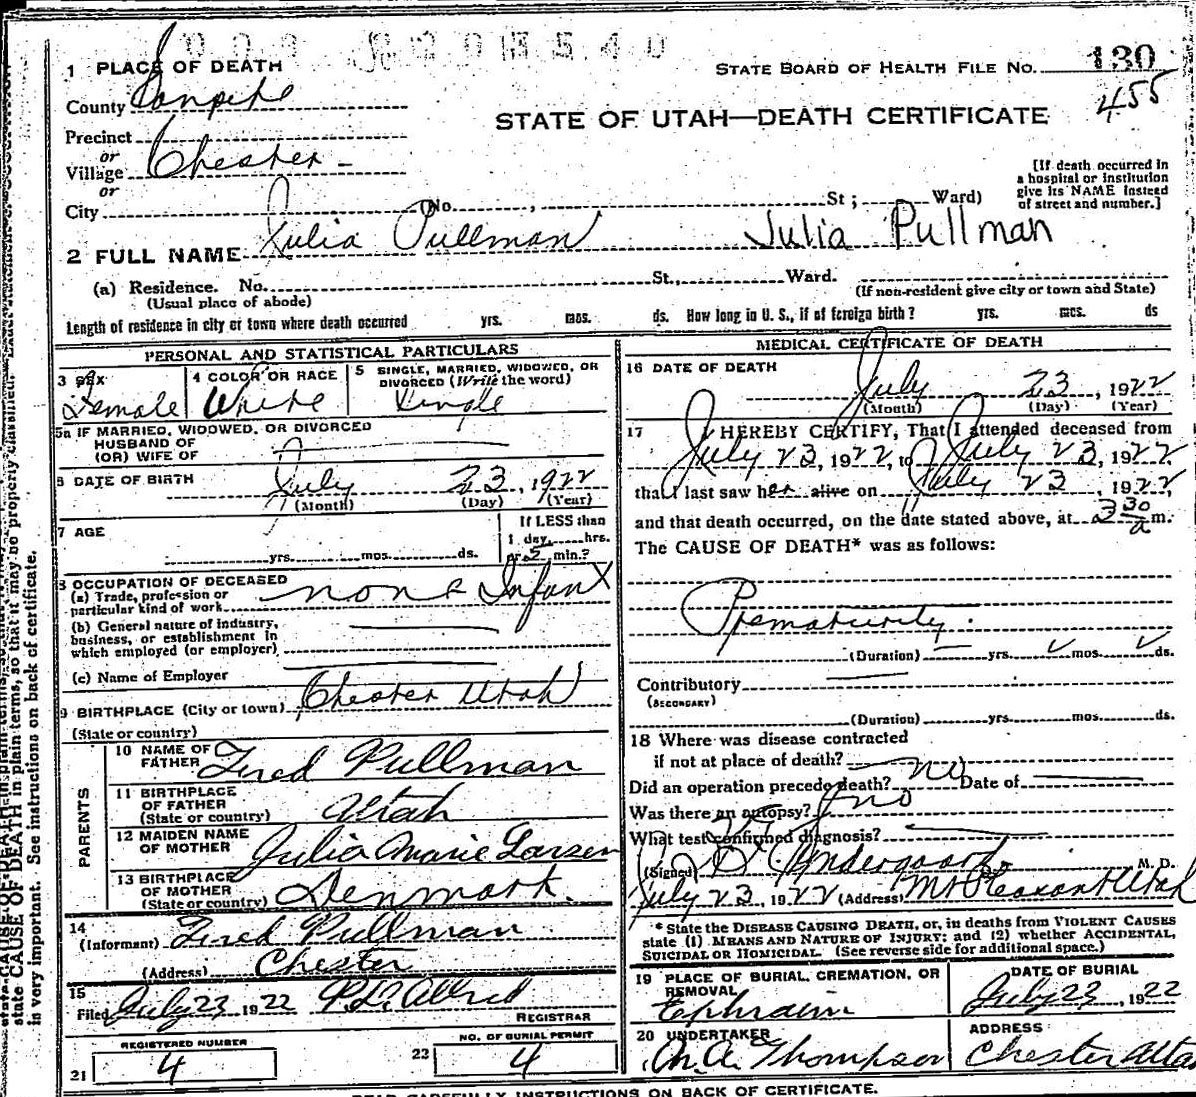 1 PLACE OF DEATH
STATE BOARD OF HEALTH FILE NO. 130
455
County Sanpete
STATE OF UTAH—DEATH CERTIFICATE
Precinct
or
Village Chester -
or
City (No. , St ; Ward)
[If death occurred in
a hospital or institution
give its NAME instead
of street and number.]
2 FULL NAME Julia Pullman Julia Pullman
(a) Residence. No. St., Ward.
(Usual place of abode)
(If non-resident give city or town and State)
Length of residence in city or town where death occurred yrs. mos. ds. How long in U. S., if of foreign birth? yrs. mos. ds
PERSONAL AND STATISTICAL PARTICULARS
3 SEX
Female
4 COLOR OR RACE
White
5 SINGLE, MARRIED, WIDOWED, OR
DIVORCED (Write the word)
Single
5a IF MARRIED, WIDOWED, OR DIVORCED
HUSBAND OF
(OR) WIFE OF
6 DATE OF BIRTH July 23, 1922
(Month) (Day) (Year)
7 AGE
yrs. mos. ds.
If LESS than
1 day, hrs.
or 5 min.?
8 OCCUPATION OF DECEASED
(a) Trade, profession or
particular kind of work none Infant
(b) General nature of industry,
business, or establishment in
which employed (or employer)
(c) Name of Employer
9 BIRTHPLACE (City or town) Chester Utah
(State or country)
PARENTS
10 NAME OF
FATHER Fred Pullman
11 BIRTHPLACE
OF FATHER
(State or country) Utah
12 MAIDEN NAME
OF MOTHER Julia Marie Larsen
13 BIRTHPLACE
OF MOTHER
(State or country) Denmark.
14
(Informant) Fred Pullman
(Address) Chester
15
Filed July 23 1922 P. L. Allred
REGISTRAR
21 REGISTERED NUMBER
4
22 NO. OF BURIAL PERMIT
4
MEDICAL CERTIFICATE OF DEATH
16 DATE OF DEATH
July 23, 1922
(Month) (Day) (Year)
17 I HEREBY CERTIFY, That I attended deceased from
July 23, 1922, to July 23, 1922,
that I last saw her alive on July 23, 1922,
and that death occurred, on the date stated above, at 3 30 a m.
The CAUSE OF DEATH* was as follows:
Prematurity.
(Duration) yrs. mos. ds.
Contributory
(SECONDARY)
(Duration) yrs. mos. ds.
18 Where was disease contracted
if not at place of death?
Did an operation precede death? no Date of
Was there an autopsy? no
What test confirmed diagnosis?
(Signed) M. D.
July 23, 1922 (Address) Mt Pleasant Utah
* State the DISEASE CAUSING DEATH, or, in deaths from VIOLENT CAUSES
state (1) MEANS AND NATURE OF INJURY; and (2) whether ACCIDENTAL,
SUICIDAL OR HOMICIDAL. (See reverse side for additional space.)
19 PLACE OF BURIAL, CREMATION, OR
REMOVAL
Ephraim
DATE OF BURIAL
July 23, 1922
20 UNDERTAKER
Thompson
ADDRESS
Chester Utah
READ CAREFULLY INSTRUCTIONS ON BACK OF CERTIFICATE.
state CAUSE OF DEATH in plain terms, so that it may be properly classified.
is very important. See instructions on back of certificate.